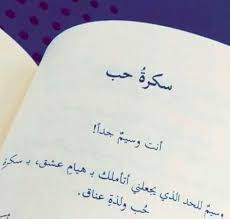 سكرةُ حب
أنت وسيمٌ جداً!
وسيمٌ للحد الذي يجعلني أتأملك بـ هيام عشق، بـ سكرةِ
حُب ولذةِ عناق.